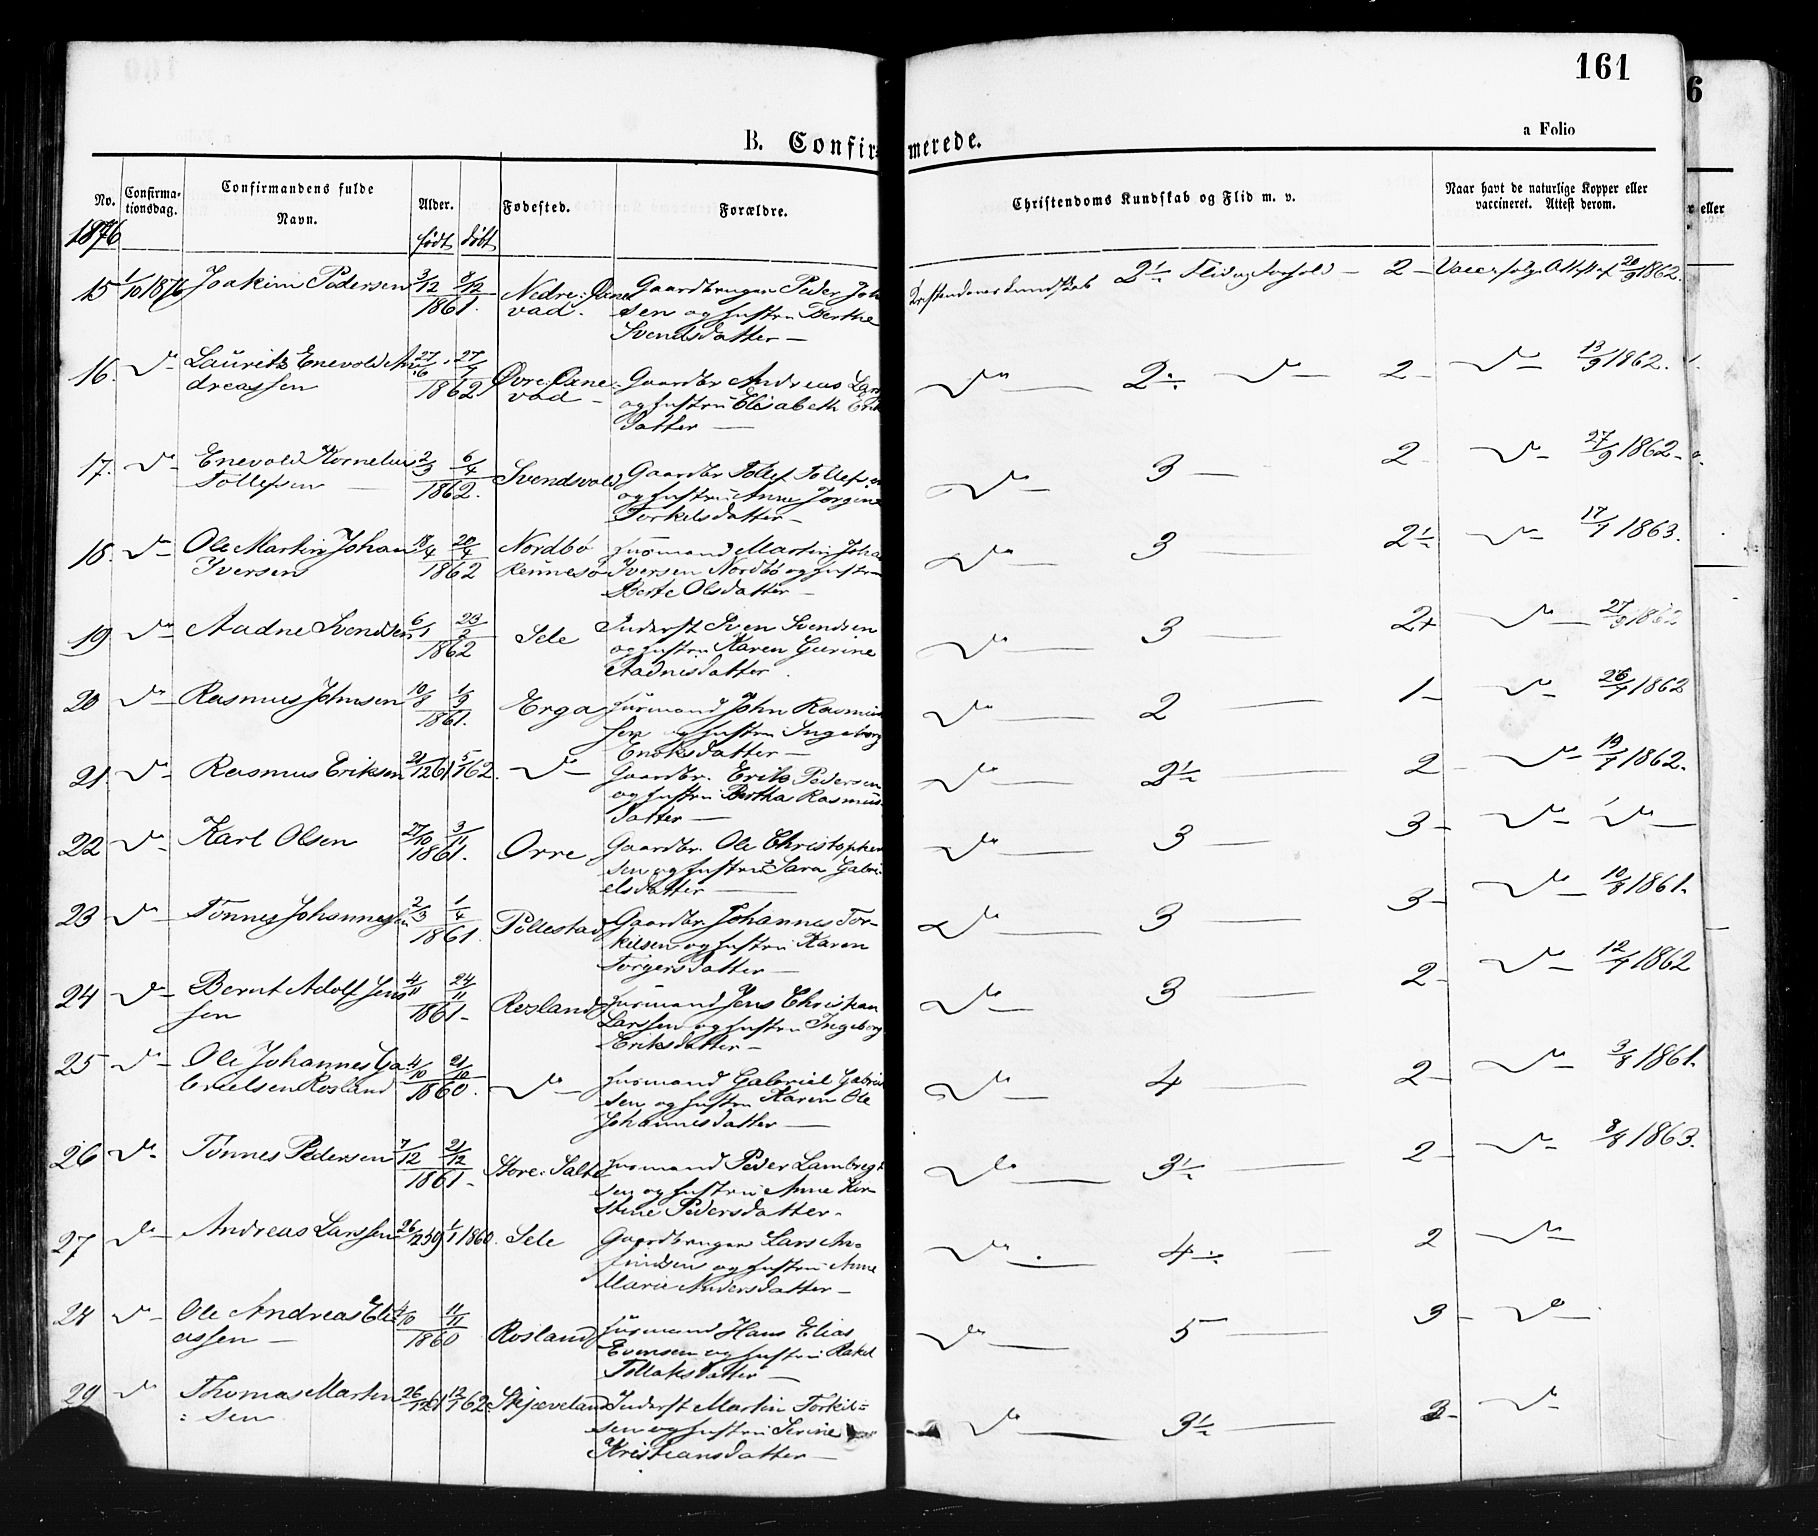 161
6
a Folio
B. Confirmerede.
No.
Confirma-
tionsdag.
Confirmandens fulde
Navn.
Alder.
født døbt
Fødested.
Forældre.
Christendoms Kundskab og Flid m. v.
Naar havt de naturlige Kopper eller
vaccineret. Attest derom.
r eller
1876
15 1/10 1876 Joakim Pedersen 3/12 8/12 1861. Nedre: Oane
vad. Gaardbruger Peder Joh
sen og hustru Berthe
Svendsdatter —
Kristendomskundskab 2÷ Flid og Forhold — 2 — Vacc. følge Attest af 20/9 1862.
16. Do Lauritz Enevold An
dreassen 27/6 27/7 1862 Øvre: Oane
vad — Gaardbr Andreas Lars
og hustru Elisabeth Erik
datter —
Do 2÷ Do 2 — Do 13/9 1862.
17. Do Enevold Kornelius
Tollefsen 2/3 6/4 1862. Svendsvold Gaardbr Tollef Tollefsen
og hustru Anne Jorgine
Torkelsdatter —
Do 3 — 2 Do 27/9 1862 —
18. Do Ole Martin Johan
Iversen 18/4 20/4 1862 Nordbø
Rennesø Husmand Martin Joha
Iversen Nordbø og hustru
Berte Olsdatter —
Do 3 2÷ Do 17/7 1863.
19 Do Aadne Svendsen 6/1 23/2 1862 Sele Inderst Sven Svendsen
og hustru Karen Gurine
Aadnesdatter.
Do 3 — 2+ Do 27/9 1862
20 Do Rasmus Johnsen 10/8 1/9 1861. Erga Husmand John Rasmus
sen og hustru Ingeborg
Enoksdatter —
Do 2 — 1 — Do 26/7 1862
21. Do Rasmus Eriksen 21/12 61 5/1 62. Do Gaardbr. Erik Pedersen
og hustru Bertha Rasmus-
datter —
Do 2÷ — 2 Do 19/7 1862.
22 Do Karl Olsen 27/10 3/11 1861. Orre Gaardbr. Ole Christopher
sen og hustru Sara Gabri-
elsdatter —
Do 3 — 3 — Do Do
23 Do Tønnes Johannessen 2/3 1/4 1861. Pollestad Gaardbr. Johannes Tor-
kilsen og hustru Karen
Torgersdatter —
Do 3 — 3 — Do 10/8 1861.
24 Do Bernt Adolf Jens
sen 4/11 24/11 1861 — Rosland Husmand Jens Christian
Larssen og hustru Ingeborg
Eriksdatter —
Do 3 — 2 — Do 12/7 1862
25 Do Ole Johannes Ga
brielsen Rosland 4/10 21/10 1860. Do Husmand Gabriel Gabriel
sen og hustru Karen Ole
Johannesdatter —
Do 4 — 2 — Do 3/8 1861.
26 Do Tønnes Pedersen 7/12 21/12 1861 — Store: Salte Husmand Peder Lambregt
sen og hustru Anne Kir-
stine Pedersdatter —
Do 3÷ — 2 — Do 3/8 1863.
27 Do Andreas Larssen 26/12 59 1/1 1860. Sele Gaardbruger Lars Am-
undsen og hustru Anne
Marie Andersdatter —
Do 4÷ — 2 Do
28 Do Ole Andreas Eli
assen — 4/10 11/11 1860 Rosland Husmand Hans Elias
Evensen og hustru Rakel
Tollaksdatter —
Do 5 — 3 — Do
29 Do Thomas Martin
sen 26/12 61 12/1 62. Skjæveland Inderst Martin Torkil-
sen og hustru Serine
Kristiansdatter —
Do 3÷ — 3 — Do